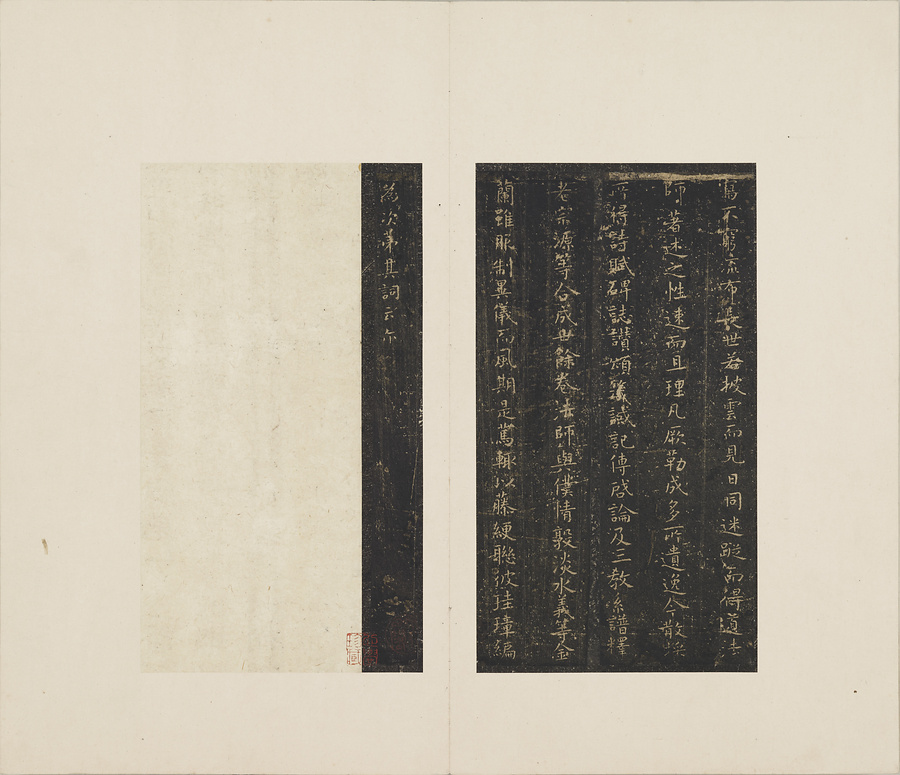 寫不窮流布長世若披雲而見日同迷蹤而得道法
師著述之性速而且理凡厥勒成多所遺逸今散採
所得詩賦碑誌讚頌箴誡記傳啓論及三教系譜釋
老宗源等合成卅餘卷法師與僕情敦淡水義等金
蘭雖服制異儀而風期是篤輒以藤緶聯彼珪璋編
為次第其詞云尒